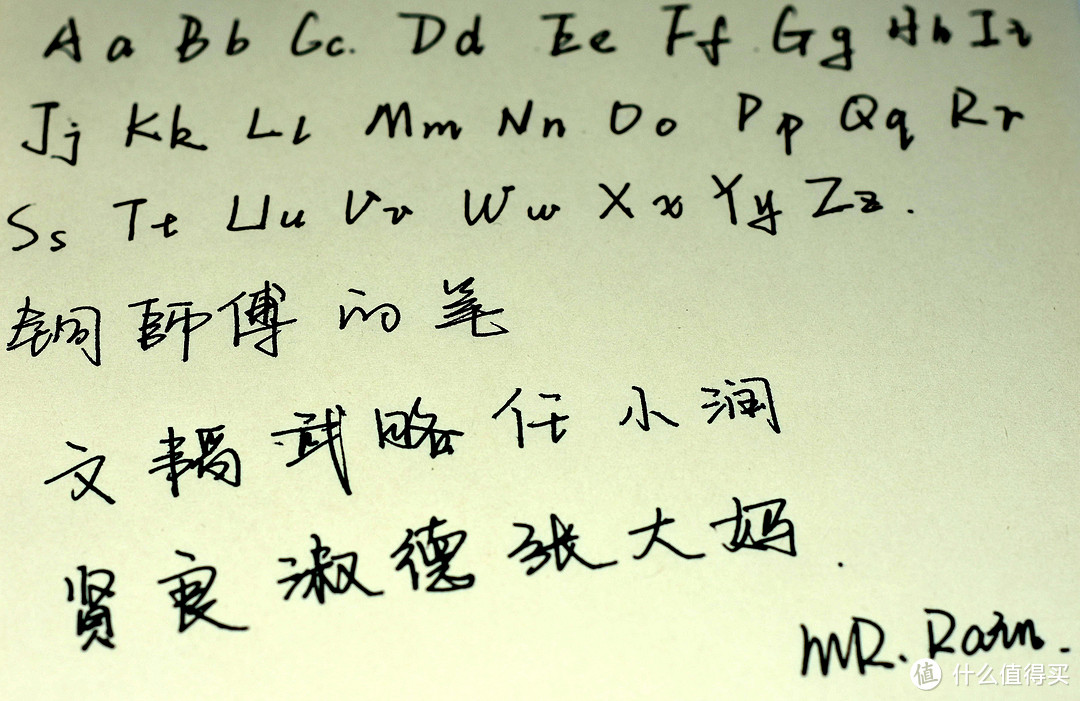 A a B b C c. D d E e F f G g H h I i
J j K k L l M m N n O o P p Q q R r
S s T t U u V v W w X x Y y Z z .
銅師傅的笔
文韬武略任小润
贤良淑德张大妈.
MR. Rain.
值 什么值得买